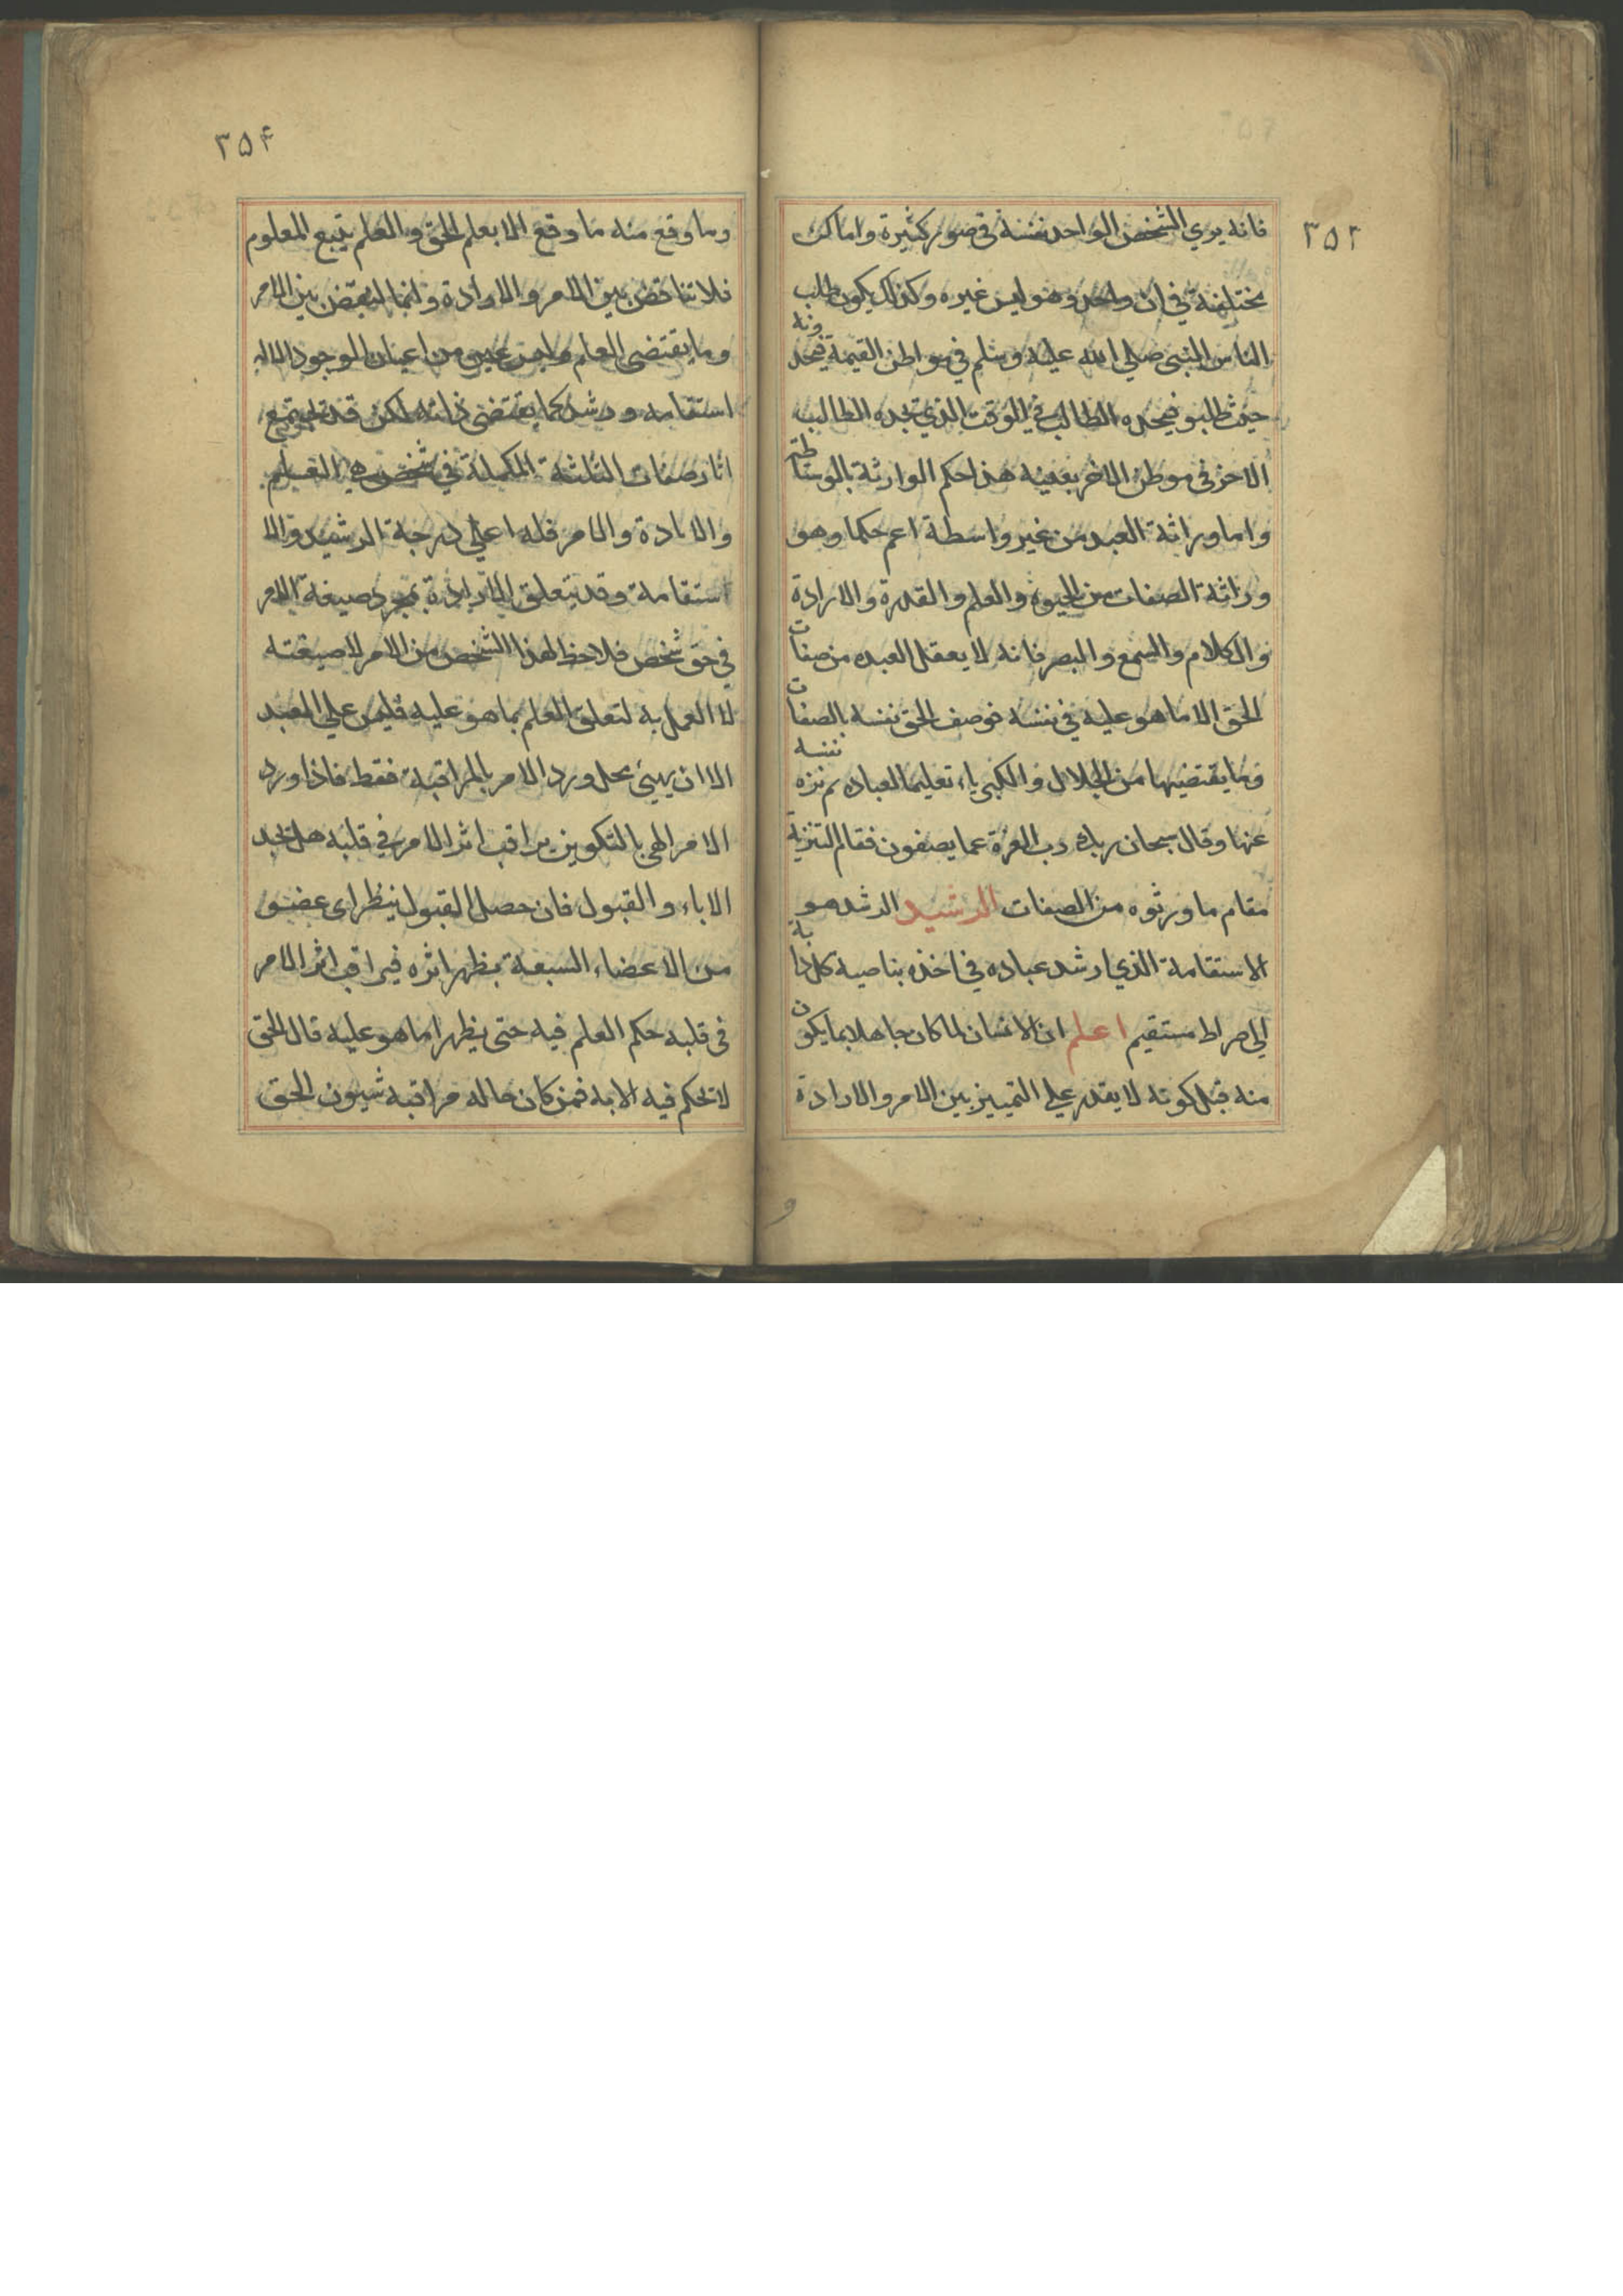 ٣۵٢
فانه يري الشخص الواحد نفسه في صور كثيرة واماكن
مختلفة في ان واحد وهو ليس غيره وكذلك يكون طلب
الناس النبي صلي الله عليه وسلم في مواطن القيمة فيجدونه
حيث طلبو فيجده الطالب في الوقت الذي يجده الطالب
الاخر في موطن الاخر بعينه هذا حكم الوارثة بالوسائط
واما وراثة العبد من غير واسطة اعم حكما وهو
وراثة الصفات من الحيوة والعلم والقدرة والارادة
والكلام والسمع والبصر فانه لا يعقل العبد من صفات
الحق الا ما هو عليه في نفسه فوصف الحق نفسه بالصفات
وما يقتضيها من الجلال والكبرياء تعليما لعباده ثم نزه نفسه
عنها وقال سبحان ربك رب العزة عما يصفون فقام التنزيه
مقام ما ورثوه من الصفات الرشيد الرشد هو
الاستقامة الذي ارشد عباده في اخذه بناصية كل دابة
الي صراط مستقيم اعلم ان الانسان لما كان جاهلا بما يكون
منه قبل كونه لا يقدر علي التمييز بين الامر والارادة
و
٣۵۴
وما وقع منه ما وقع الا بعلم الحق والعلم يتبع المعلوم
فلا تناقض بين الامر والارادة وانما النقض بين الامر
وما يقتضي العلم وليس عين من اعيان الموجود الا له
استقامه ورشد كما يقتضي ذاته لكن قد يجتمع
اثار صفات الثلثة المكملة في شخص هي العلم
والارادة والامر فله اعلي درجة الرشيد والا
ستقامة وقد يتعلق الارادة بمجرد صيغة الامر
في حق شخص فلا حظ لهذا الشخص من الامر الا صيغته
لا العمل به لتعلق العلم بما هو عليه فليس علي العبد
الا ان يهيئ محل ورد الامر بالمراقبة فقط فاذا ورد
الامر الهي بالتكوين يراقب اثر الامر في قلبه هل يجد
الاباء والقبول فان حصل القبول ينظر اي عضو
من الاعضاء السبعة يظهر اثره فيراقب اثر الامر
في قلبه حكم العلم فيه حتي يظهر ما هو عليه قال الحق
لا تحكم فيه الا به فمن كان حاله مراقبة شيون الحق